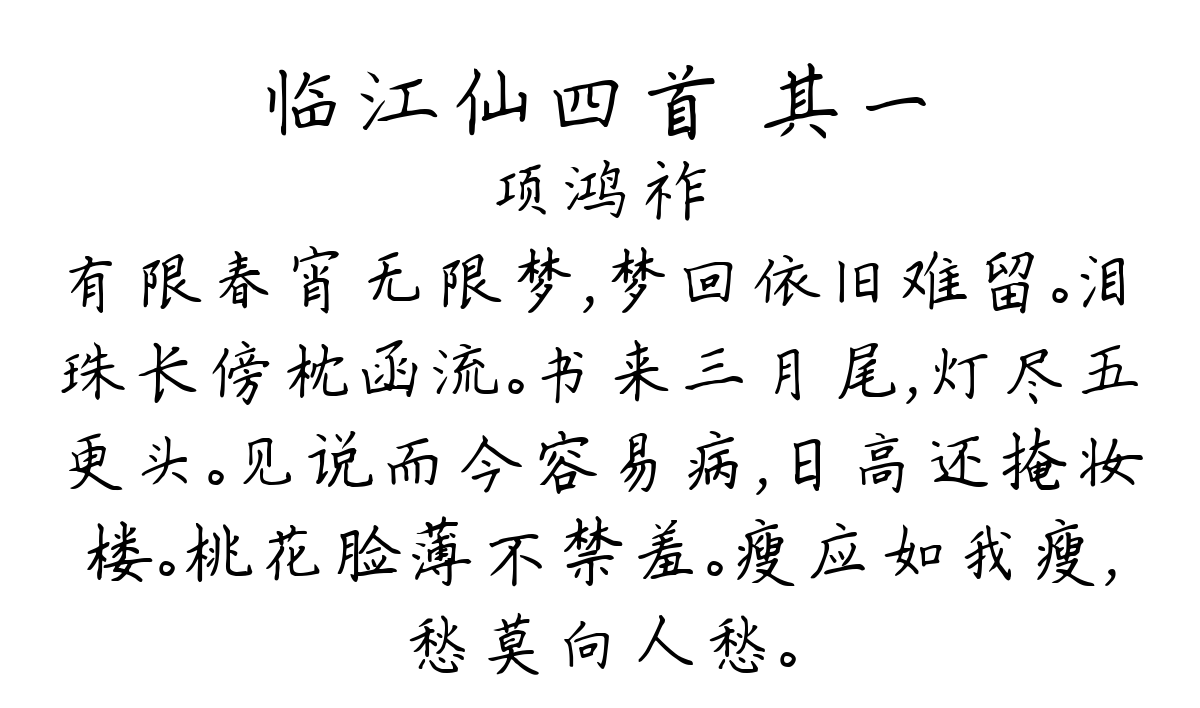 临江仙四首 其一
项鸿祚
有限春宵无限梦,梦回依旧难留。泪
珠长傍枕函流。书来三月尾,灯尽五
更头。见说而今容易病,日高还掩妆
楼。桃花脸薄不禁羞。瘦应如我瘦,
愁莫向人愁。